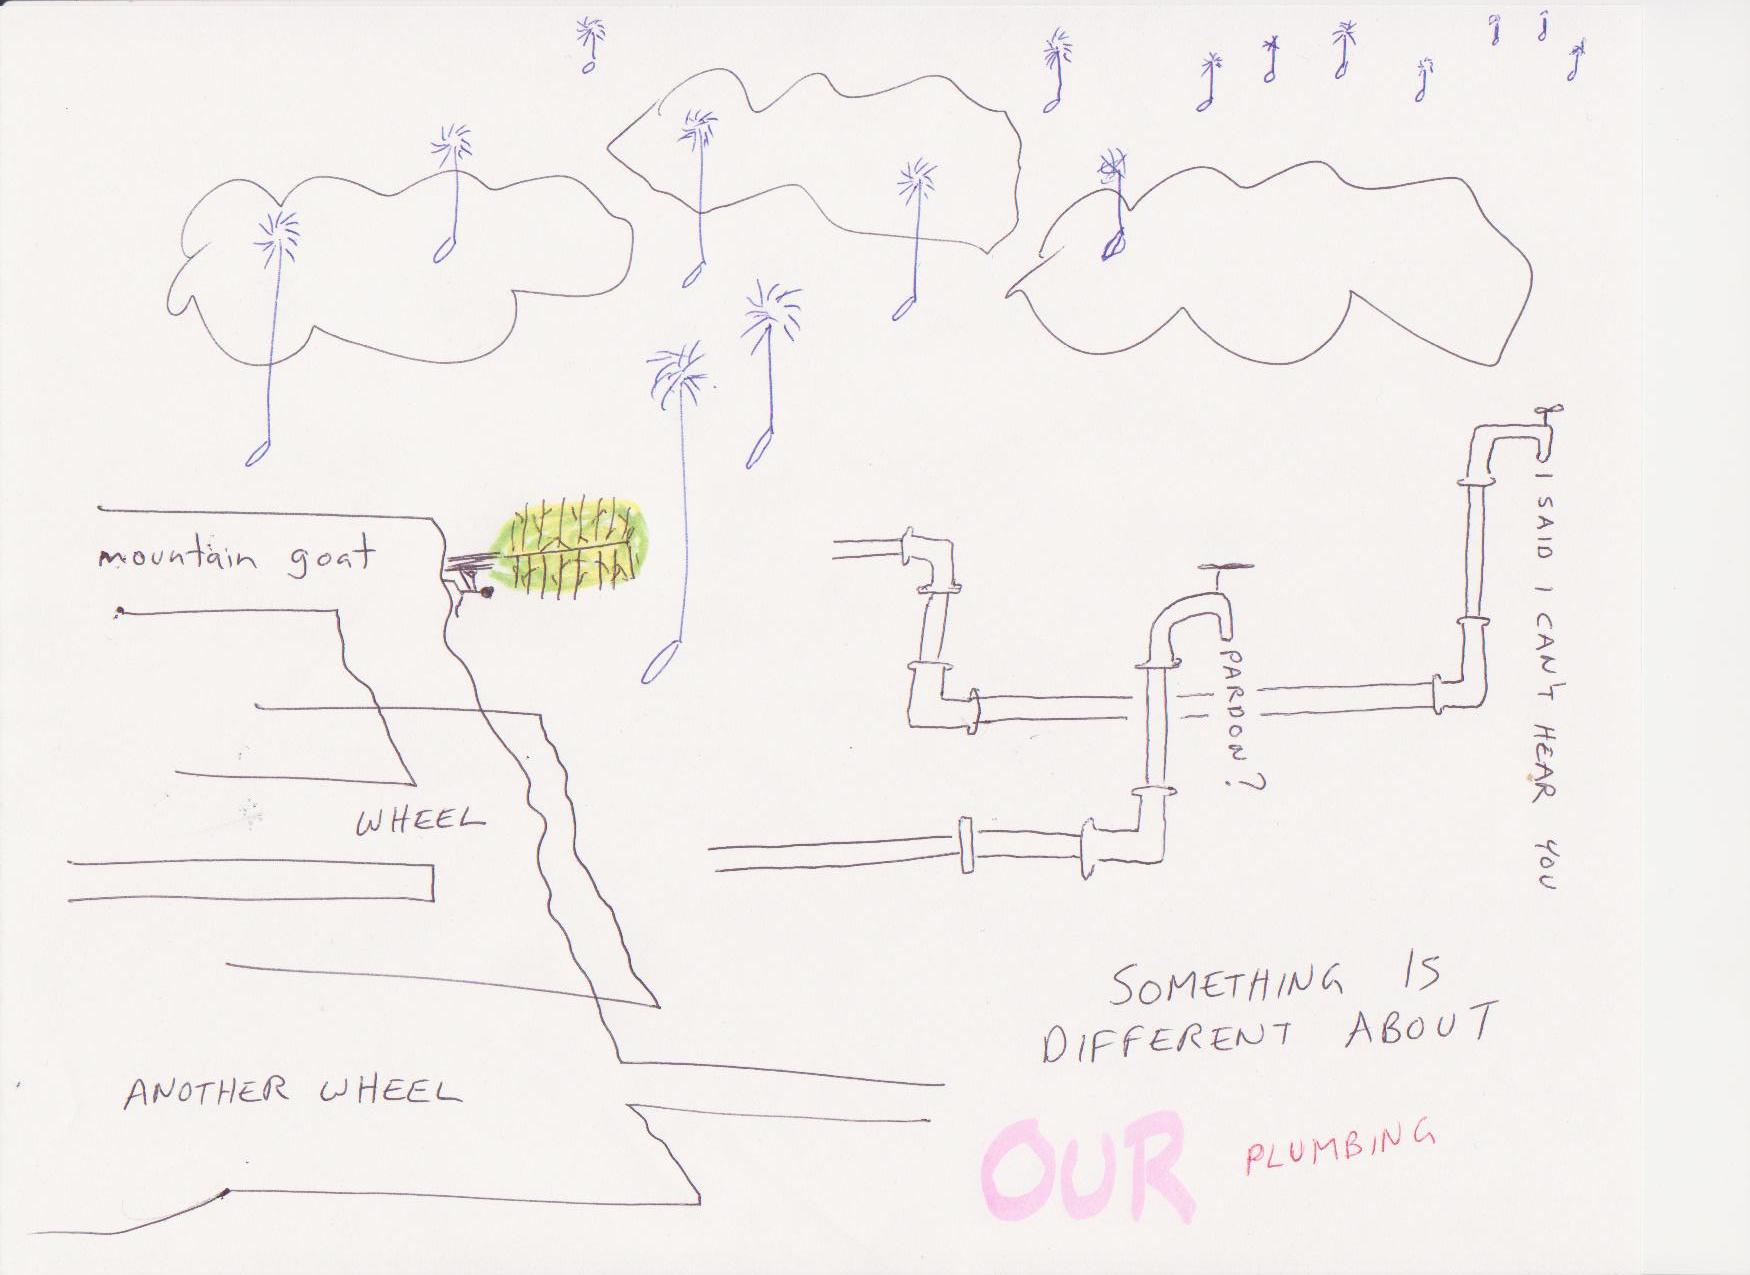 mountain goat
WHEEL
ANOTHER WHEEL
PARDON?
I SAID I CAN'T HEAR YOU
SOMETHING IS
DIFFERENT ABOUT
OUR PLUMBING